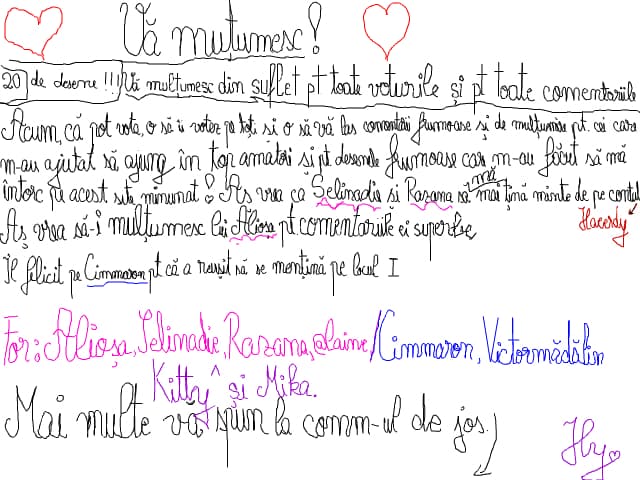 Vă mulțumesc!
20 de desene!!! Vă mulțumesc din suflet pt toate voturile și pt toate comentariile
Acum, că pot vota, o se ii votez pe toți si o să vă las comentări frumoase și de mulțumire pt. cei care
m-au ajutat să ajung în top amatori și pt desenele frumoase care m-au făcut să mă
întorc pe acest site minunat! Aș vrea ca Selinadia și Razana să mă mai țină minte de pe contul
Hacerdy
Aș vrea să-i mulțumesc lui Alioșa pt comentariile ei superbe
Îl felicit pe Cimmaron pt că a reușit să se mențină pe locul I
For: Alioșa, Selinadie, Razana, elaine, Cimmaron, Victormădălin
Kitty^ și Mika.
Mai multe vă spun la comm-ul de jos.
Hy